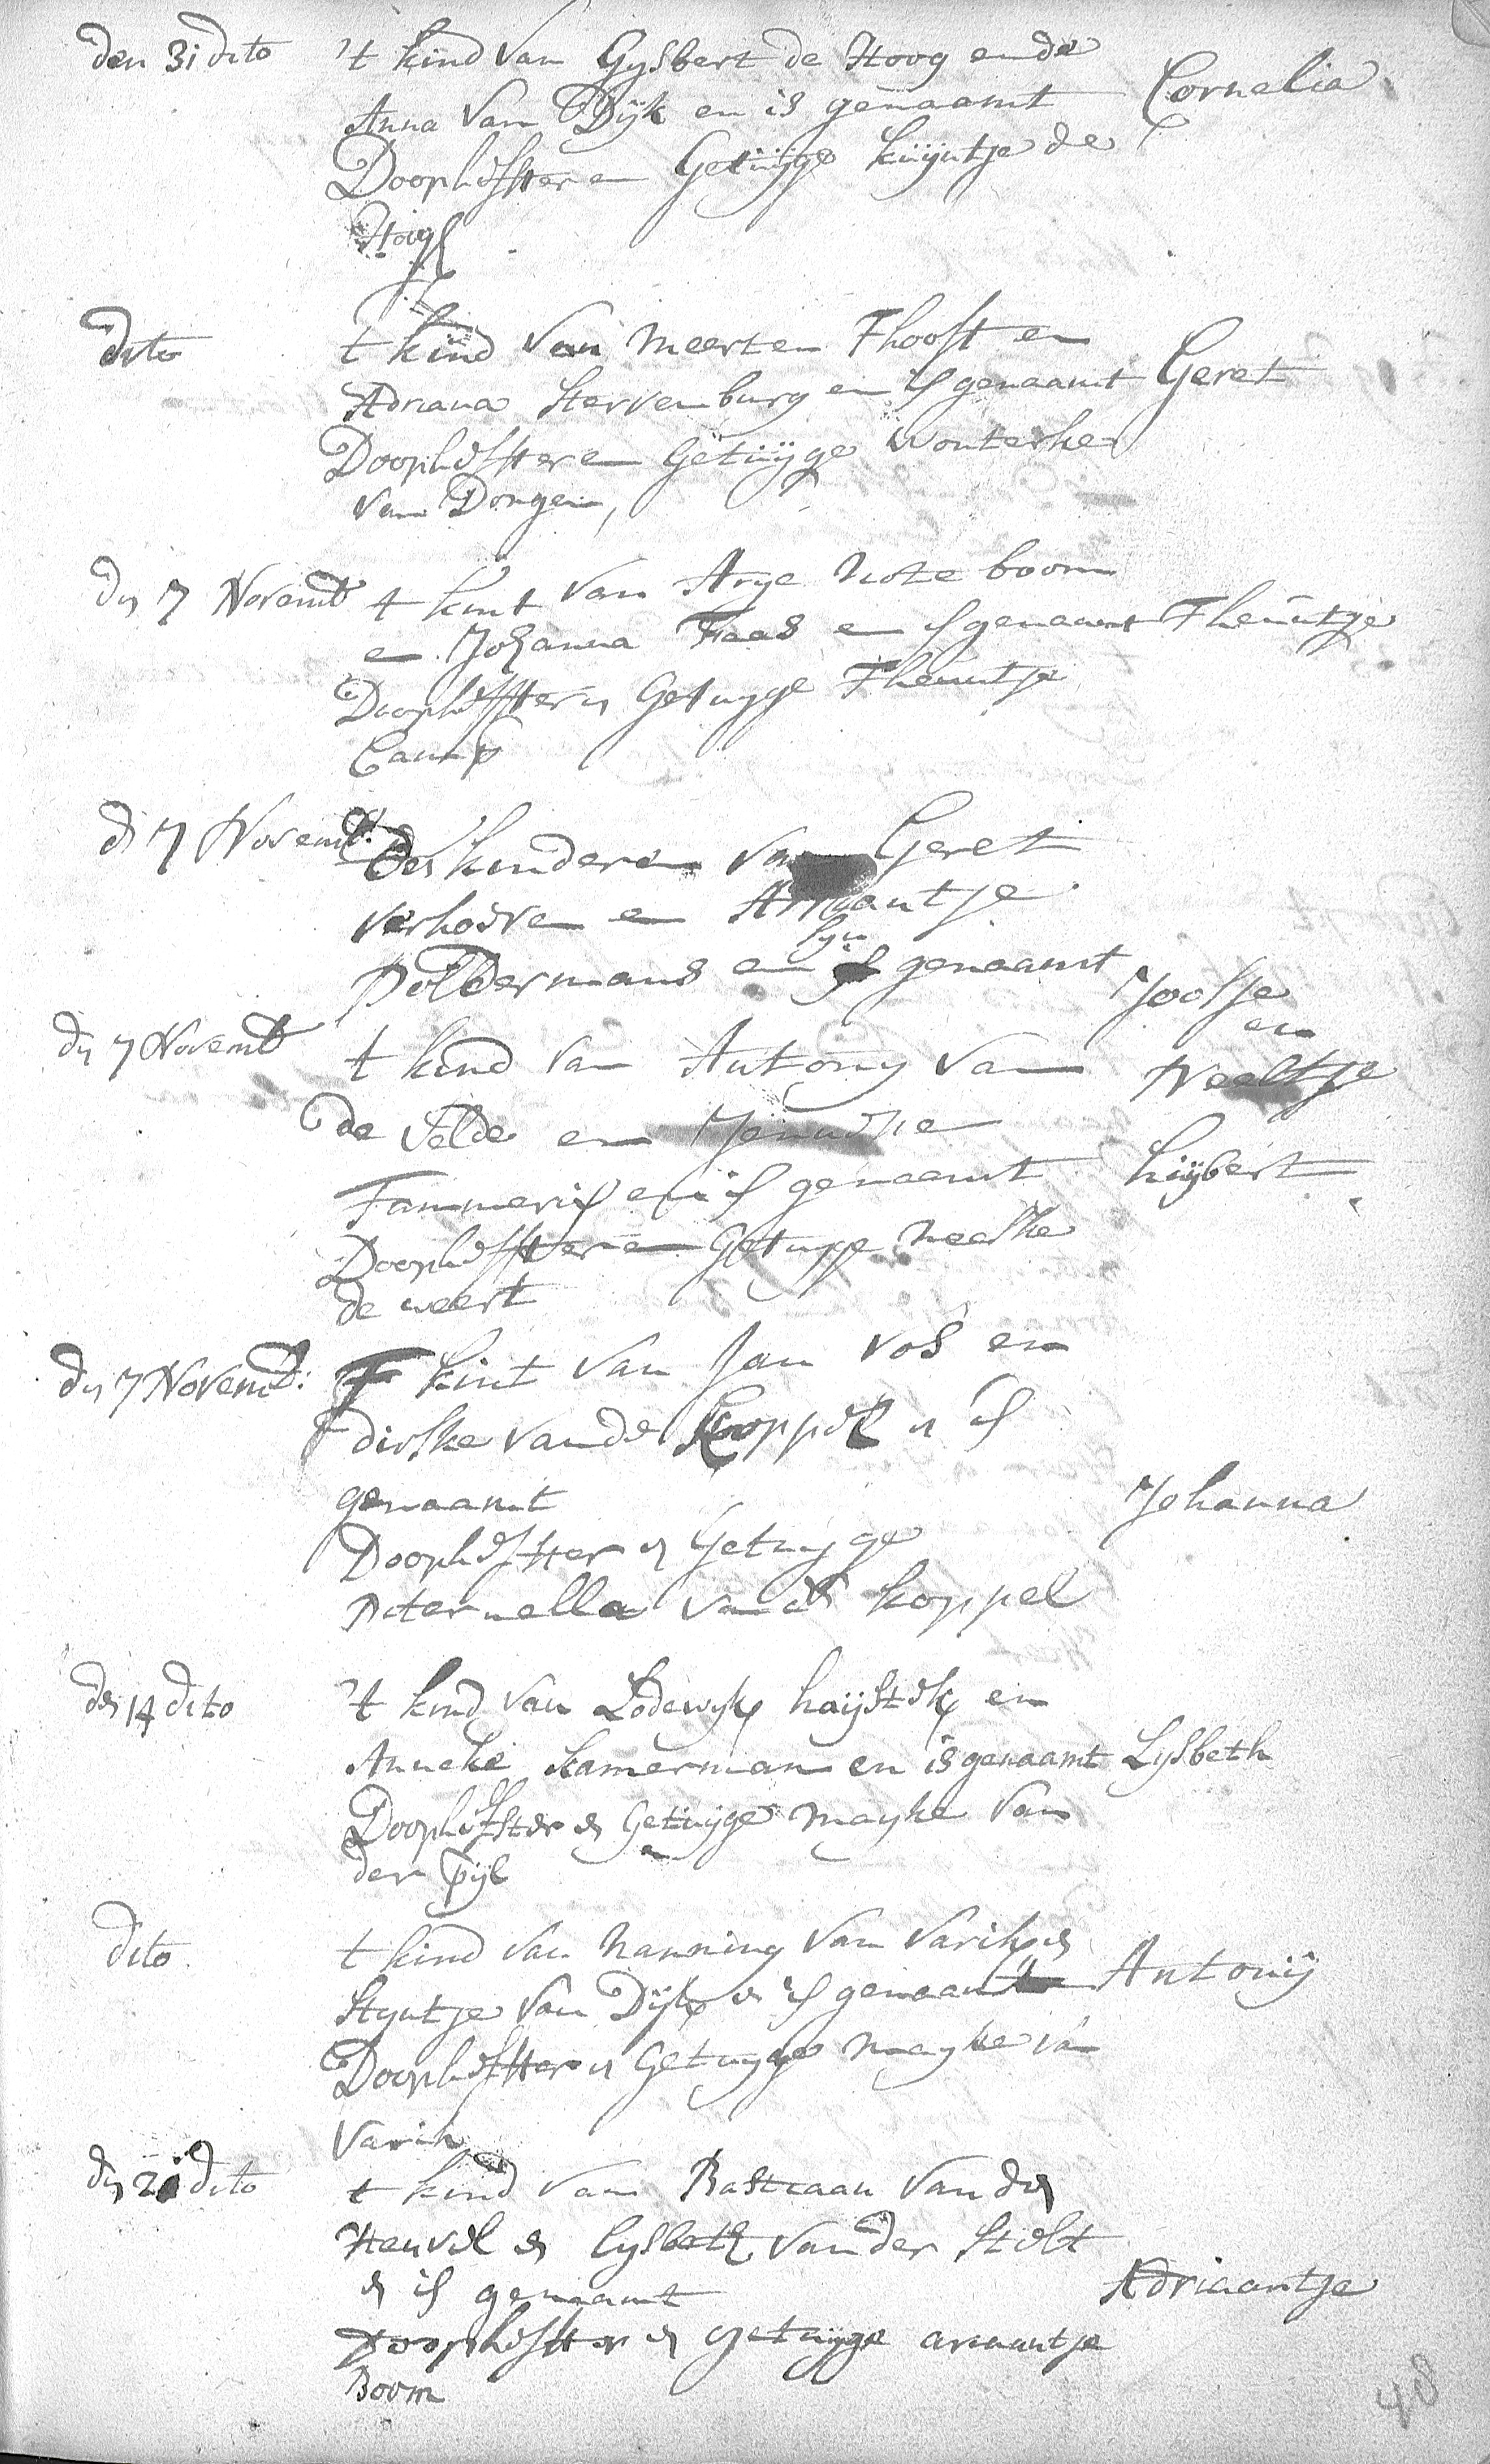 den 31 dito 't kind van Gysbert de Hoog ende
Anna van Dijk en is genaamt Cornelia
Doophefster en Getüijge küijntje de
Hoog
dito t kind van Meerten Thooft en
Adriana Stervenburg en is genaamt Geret
Doophefster en Getüijge Wouterke
van Dongen,
dn 7 Novemb t kint van Arye Note boom
en Johanna Faas en is genaamt Theuntje
Doophefster en Getuyge Theuntje
Camp
dn 7 Novemb: des kinderen van Geret
verhoeve en Ariaantje
syn
Poldermans en genaamt Jootje
en
dn 7 Novemb t kind van Antony van Neeltje
de Velde en
Tammeris en is genaamt hüijbert
Doophefster en Getuyge Neelke
de weert
dn 7 Novemb: T kint van Jan vos en
dirske vande Koppel en is
genaamt Johanna
Doophefster en Getuyge
Peternella vande koppel
den 14 dito 't kind van Lodewyk haijstek en
Anneke kamerman en is genaamt Lysbeth
Doophefster en Getuijge Mayke van
der Pijl
dito t kind van Nanning van Varik en
Styntje van Dijk en is genaamt Antonij
Doophefster en Getuyge Mayke van
Varik
dn 21 dito t kind van Bastiaan vanden
Heuvel en Lysbeth vander Stelt
en is genaamt Adriaantje
Doophefster en getuijge ariaantje
Boom
48